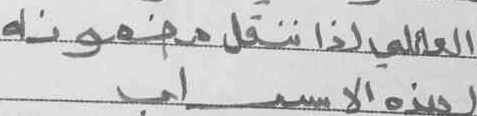 العائلي لذا ننقل مضمونه
لهذه الاسباب